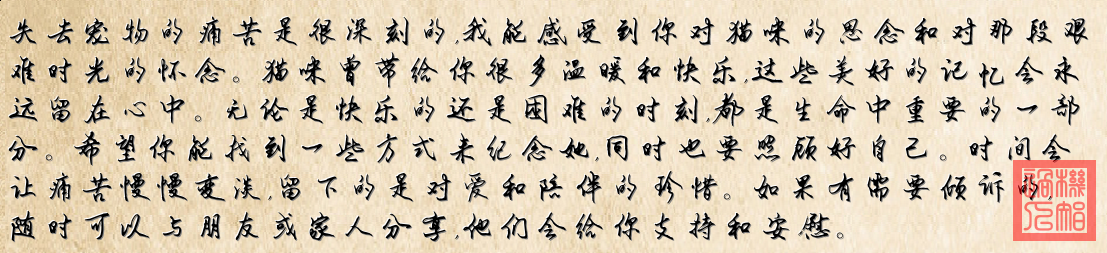 失去宠物的痛苦是很深刻的,我能感受到你对猫咪的思念和对那段艰
难时光的怀念。猫咪曾带给你很多温暖和快乐,这些美好的记忆会永
远留在心中。无论是快乐的还是困难的时刻,都是生命中重要的一部
分。希望你能找到一些方式来纪念她,同时也要照顾好自己。时间会
让痛苦慢慢变淡,留下的是对爱和陪伴的珍惜。如果有需要倾诉的
随时可以与朋友或家人分享,他们会给你支持和安慰。